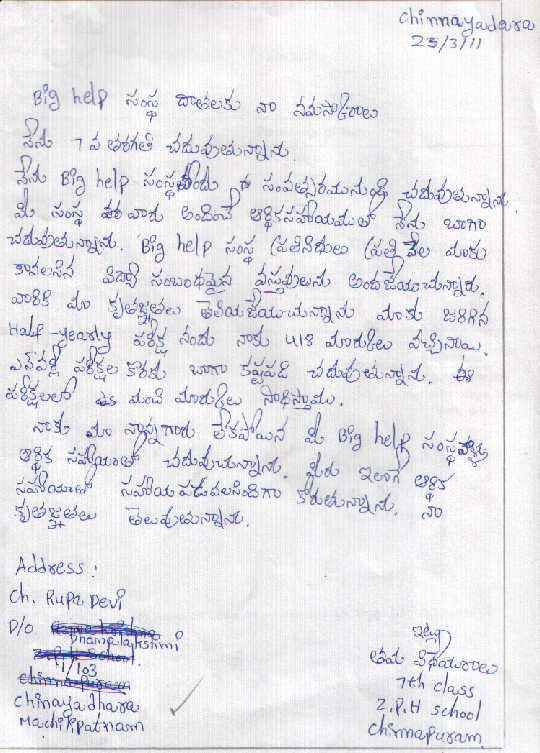 Chinnayadara
25/3/11
Big help సంస్థ దాతలకు నా నమస్కారాలు
నేను 7 వ తరగతి చదువుతున్నాను.
నేను Big help సంస్థయందు సంవత్సరమునుండి చదువుతున్నాను.
మీ సంస్థ వారు అందించే ఆర్థికసహాయముతో నేను బాగా
చదువుతున్నాను. Big help సంస్థ ప్రతినిధులు ప్రతి నెల మాకు
కావలసిన విద్యా సంబంధమైన వస్తువులను అందజేయుచున్నారు.
వారికి మా కృతజ్ఞతలు తెలియజేయుచున్నాను మాకు జరిగిన
Half-yearly పరీక్ష నందు నాకు 413 మార్కులు వచ్చినాయి.
పరీక్షల కొరకు బాగా కష్టపడి చదువుతున్నాను. ఈ
పరీక్షలలో మంచి మార్కులు సాధిస్తాము.
నాకు మా నాన్నగారు లేకపోయిన మీ Big help సంస్థ
ఆర్థిక సహాయంతో చదువుచున్నాను. మీరు ఇలాగే ఆర్థిక
సహాయంతో సహాయ పడవలసిందిగా కోరుతున్నాను. నా
కృతజ్ఞతలు తెలుపుతున్నాను.
Address:
Ch. Rupa Devi
D/O
Dhanalakshmi
1/103
Chinayadhara
Machilipatnam
ఇట్లు
తమ విధేయురాలు
7th class
Z.P.H school
Chinnapuram